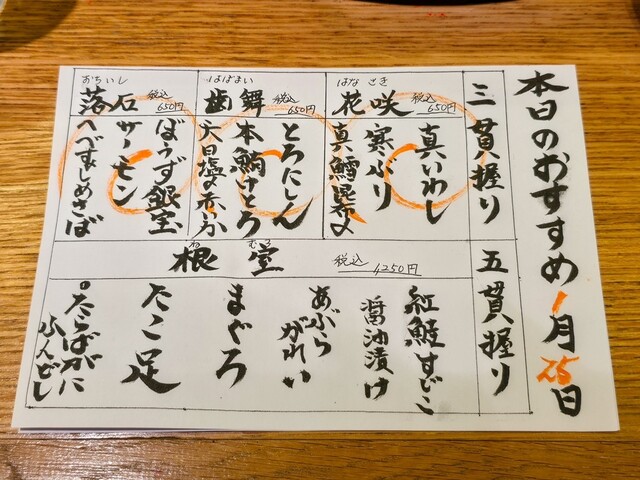 本日のおすすめ 1月25日
三貫握り
はなさき
花咲 税込 650円
真いわし
寒ぶり
真鱈昆布〆
はばまい
歯舞 税込 650円
とろにしん
本鮪中とろ
おちいし
落石 税込 650円
ぼうず銀宝
サーモン
へべすじめさば
五貫握り
ねむろ
根室 税込 1250円
紅鮭すじこ
醤油漬け
あぶら
がれい
まぐろ
たこ足
たらばがに
ふんどし